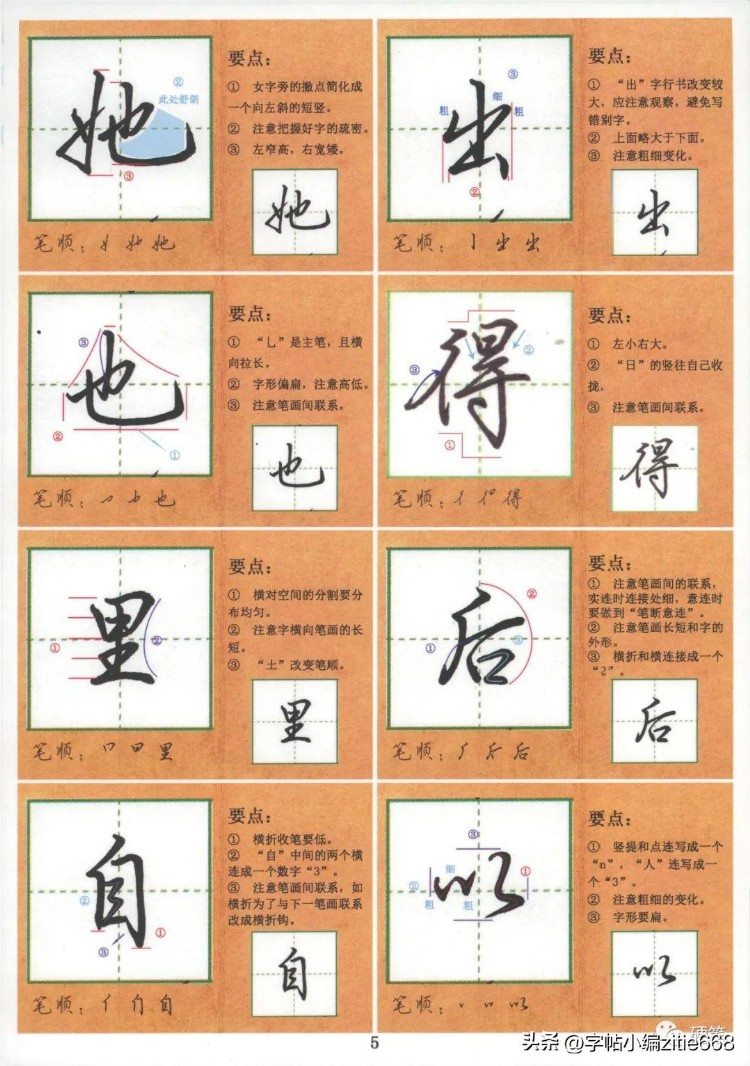 她
② 此处舒朗
③
要点:
① 女字旁的撇点简化成
一个向左斜的短竖。
② 注意把握好字的疏密。
③ 左窄高,右宽矮。
她
笔顺:
她
出
③
细
粗 粗
②
要点:
① “出”字行书改变较
大,应注意观察,避免写
错别字。
② 上面略大于下面。
③ 注意粗细变化。
出
笔顺:
出
也
③
②
①
要点:
① “乚”是主笔,且横
向拉长。
② 字形偏扁,注意高低。
③ 注意笔画间联系。
也
笔顺:
也
得
②
③
①
要点:
① 左小右大。
② “日”的竖往自己收
拢。
③ 注意笔画间联系。
得
笔顺:
得
里
①
②
要点:
① 横对空间的分割要分
布均匀。
② 注意字横向笔画的长
短。
③ “土”改变笔顺。
里
笔顺:
里
后
②
①
③
要点:
① 注意笔画间的联系,
实连时连接处细,意连时
要做到“笔断意连”。
② 注意笔画长短和字的
外形。
③ 横折和横连接成一个
“2”。
后
笔顺:
后
自
②
①
③
要点:
① 横折收笔要低。
② “自”中间的两个横
连成一个数字“3”。
③ 注意笔画间联系,如
横折为了与下一笔画联系
改成横折钩。
自
笔顺:
自
以
③
细 ①
②
粗 粗
要点:
① 竖提和点连写成一个
“n”,“人”连写成一
个“3”。
② 注意粗细的变化。
③ 字形要扁。
以
笔顺:
以
5
头条 @字帖小编zitie668